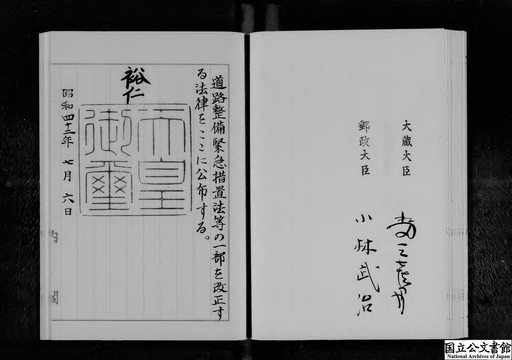 大蔵大臣
郵政大臣
小林武治
道路整備緊急措置法等の一部を改正す
る法律をここに公布する。
裕仁
天皇
御璽
昭和四十三年七月六日
内閣
国立公文書館
National Archives of Japan